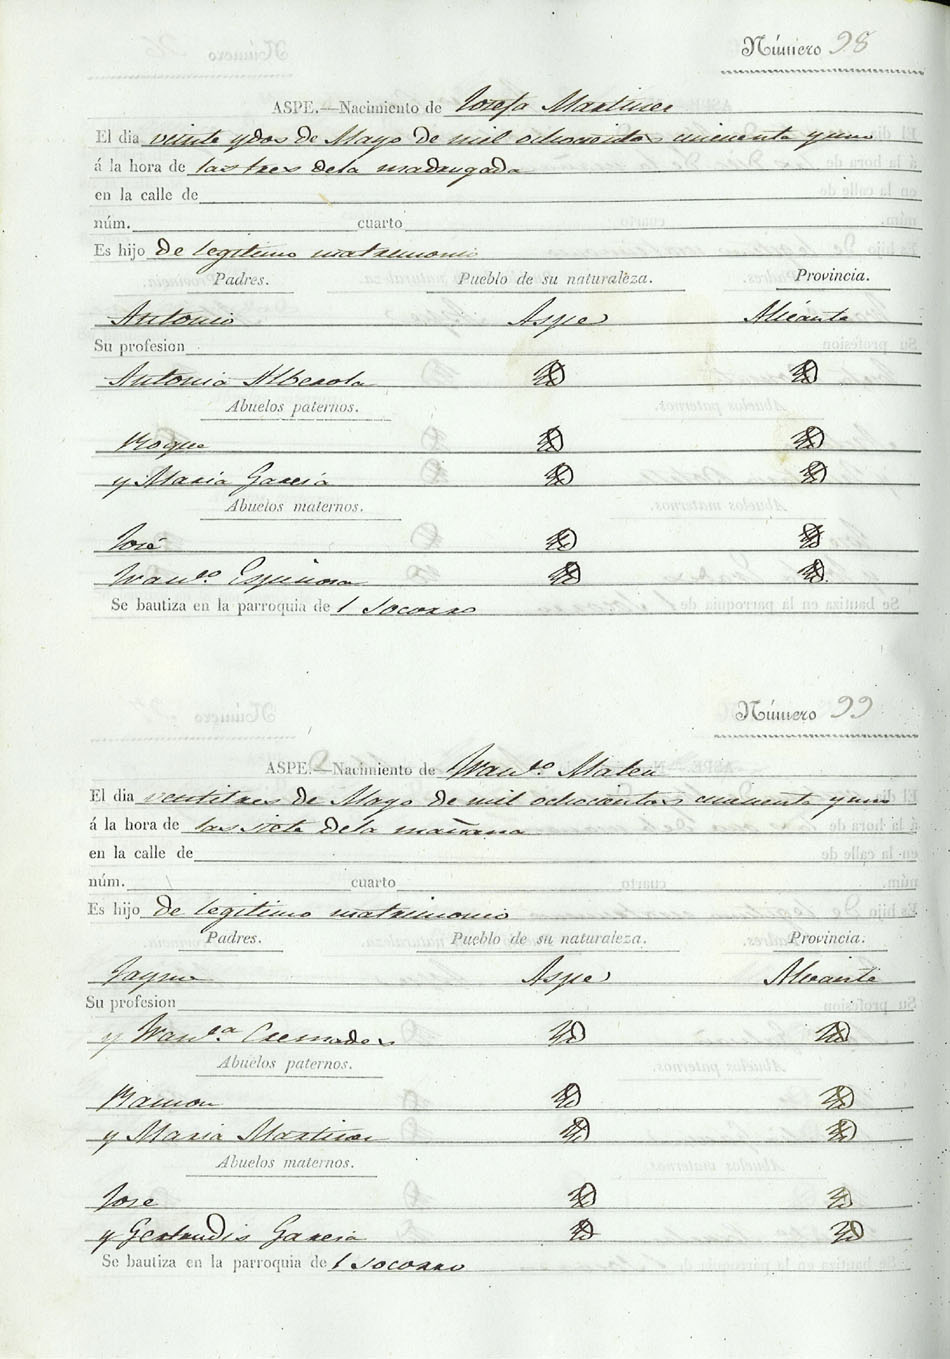 Número 98
ASPE.—Nacimiento de Josefa Martinez
El dia veinte y dos de Mayo de mil ochocientos cincuenta y uno
á la hora de las tres de la madrugada
en la calle de
núm. cuarto
Es hijo de legitimo matrimonio
Padres. Pueblo de su naturaleza. Provincia.
Antonio Aspe Alicante
Su profesion
Antonia Alberola
Abuelos paternos.
Roque
y Maria Garcia
Abuelos maternos.
José
Espinosa
Se bautiza en la parroquia de l Socorro
Número 99
ASPE.—Nacimiento de Franco. Mateu
El dia veintitres de Mayo de mil ochocientos cincuenta y uno
á la hora de las siete de la mañana
en la calle de
núm. cuarto
Es hijo de legitimo matrimonio
Padres. Pueblo de su naturaleza. Provincia.
Jayme Aspe Alicante
Su profesion
y Franca. Cremades
Abuelos paternos.
Ramon
y Maria Martinez
Abuelos maternos.
Jose
y Gertrudis Garcia
Se bautiza en la parroquia de l Socorro